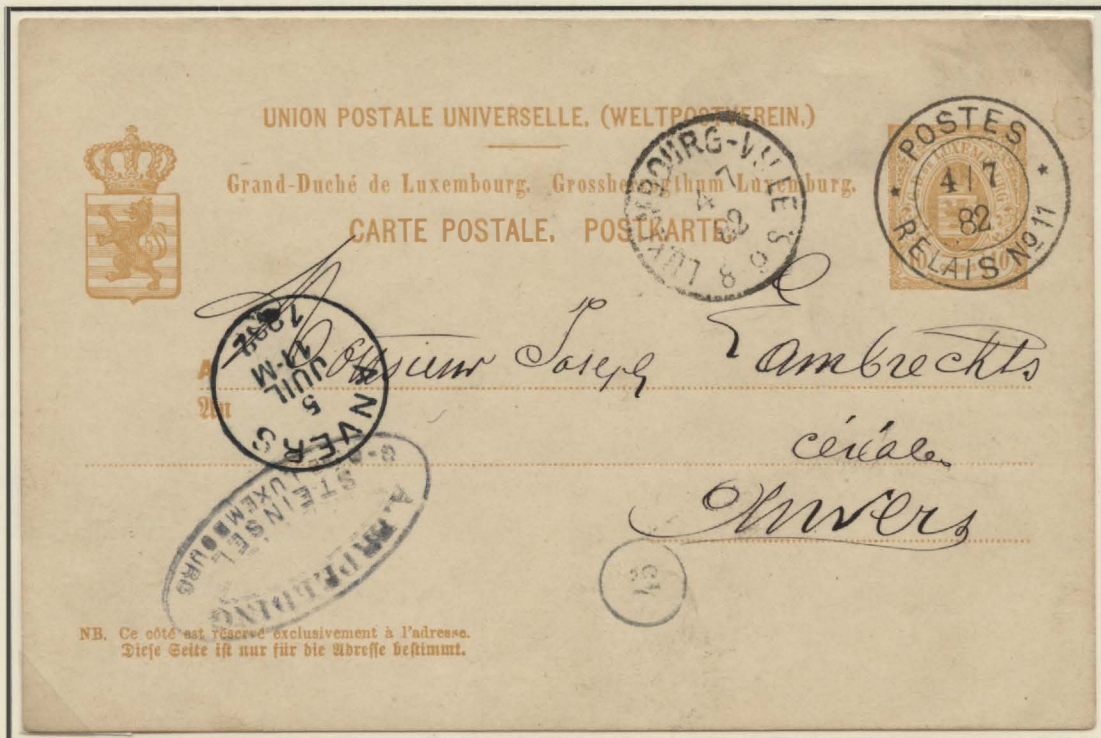 UNION POSTALE UNIVERSELLE. (WELTPOSTVEREIN.)
Grand-Duché de Luxembourg. Grossherzogthum Luxemburg.
CARTE POSTALE. POSTKARTE
POSTES
4 7
82
RELAIS No 11
LUXEMBOURG-VILLE
4 7
82
A Monsieur Joseph Lambrechts
An
céréales
Anvers
ANVERS
5
JUIL
11-M
1882
STEINSEL
LUXEMBOURG
NB. Ce côté est réservé exclusivement à l'adresse.
Diese Seite ist nur für die Adresse bestimmt.